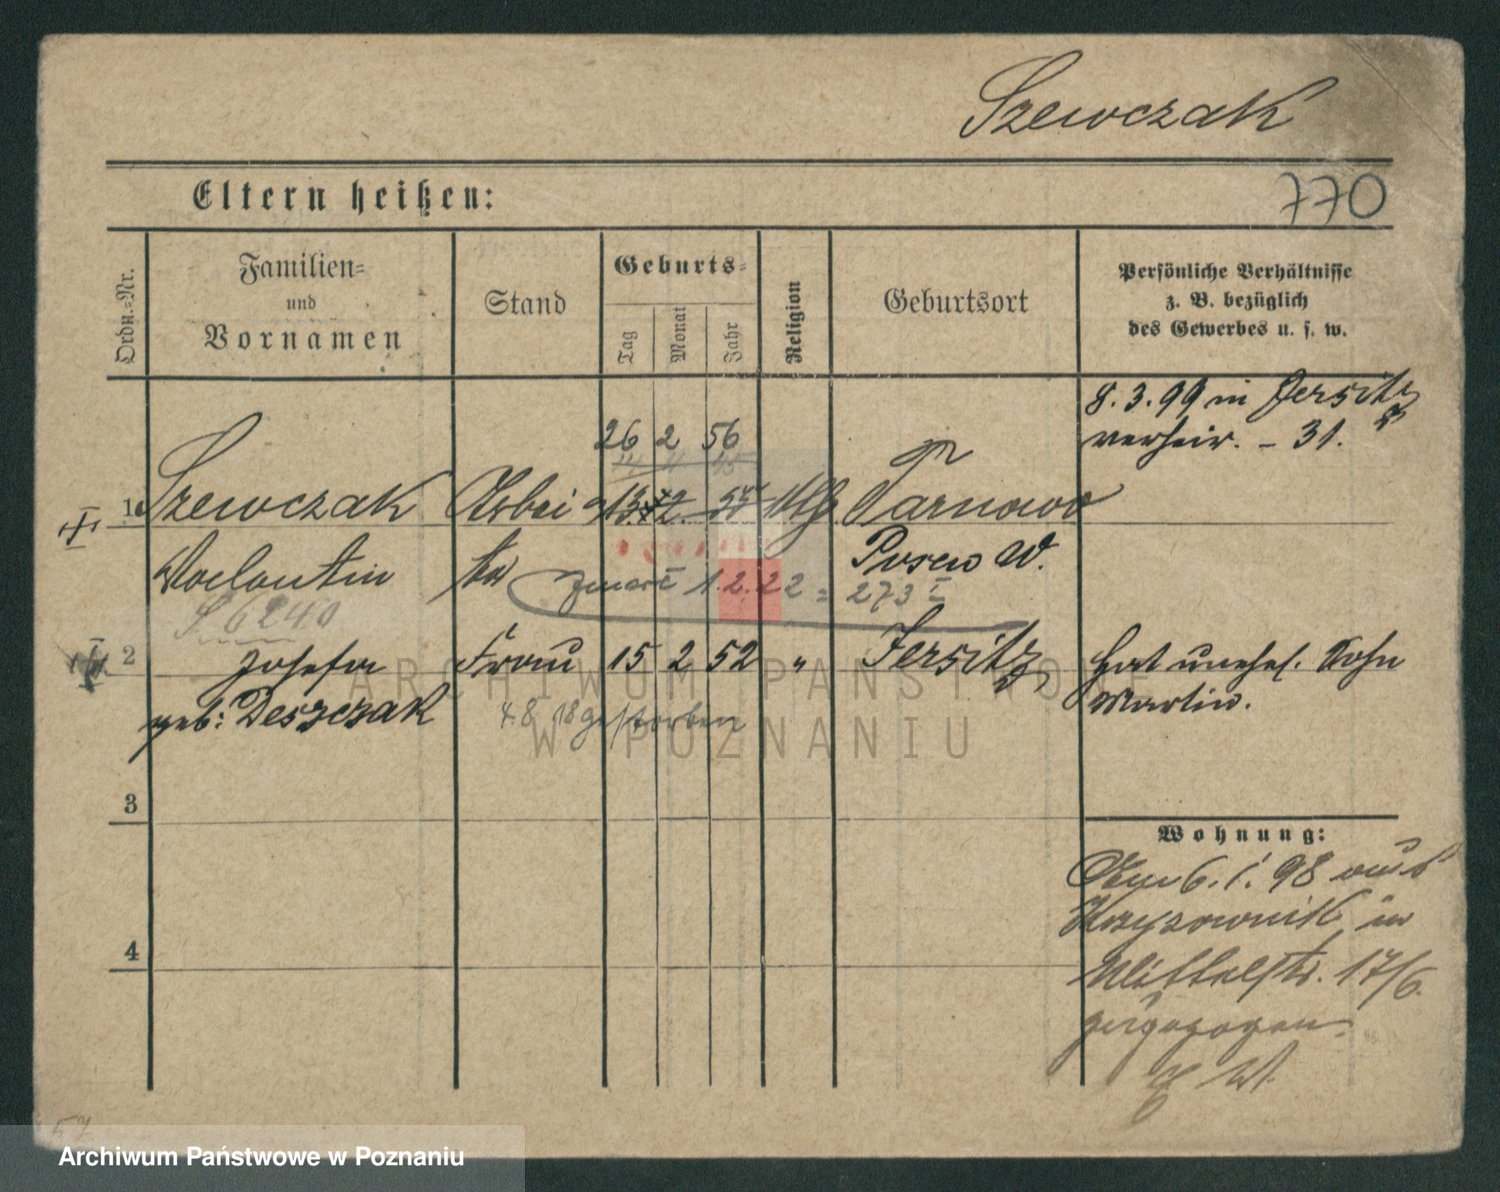 Szewczak
Eltern heißen:
770
Ordn.=Nr.
Familien=
und
Vornamen
Stand
Geburts=
Tag
Monat
Jahr
Religion
Geburtsort
Persönliche Verhältnisse
z. B. bezüglich
des Gewerbes u. s. w.
8. 3. 99 in Jersitz
verheir. - 31.
26 2 56
1 Szewczak Arbei 13 2. 55 kth. Tarnowo
Valentin ter Posen W.
zmarł 1.2.22 = 273 I
S 6240
2 Josefa Frau 15 2 52 " Jersitz hat unehel. Sohn
geb: Deszczak Martin.
4 8 18 gestorben
ARCHIWUM PAŃSTWOWE
W POZNANIU
3
Wohnung:
Am 6. 1. 98 aus
Krzyzownik in
Mittelstr. 17/6.
zugezogen.
4
57
Archiwum Państwowe w Poznaniu